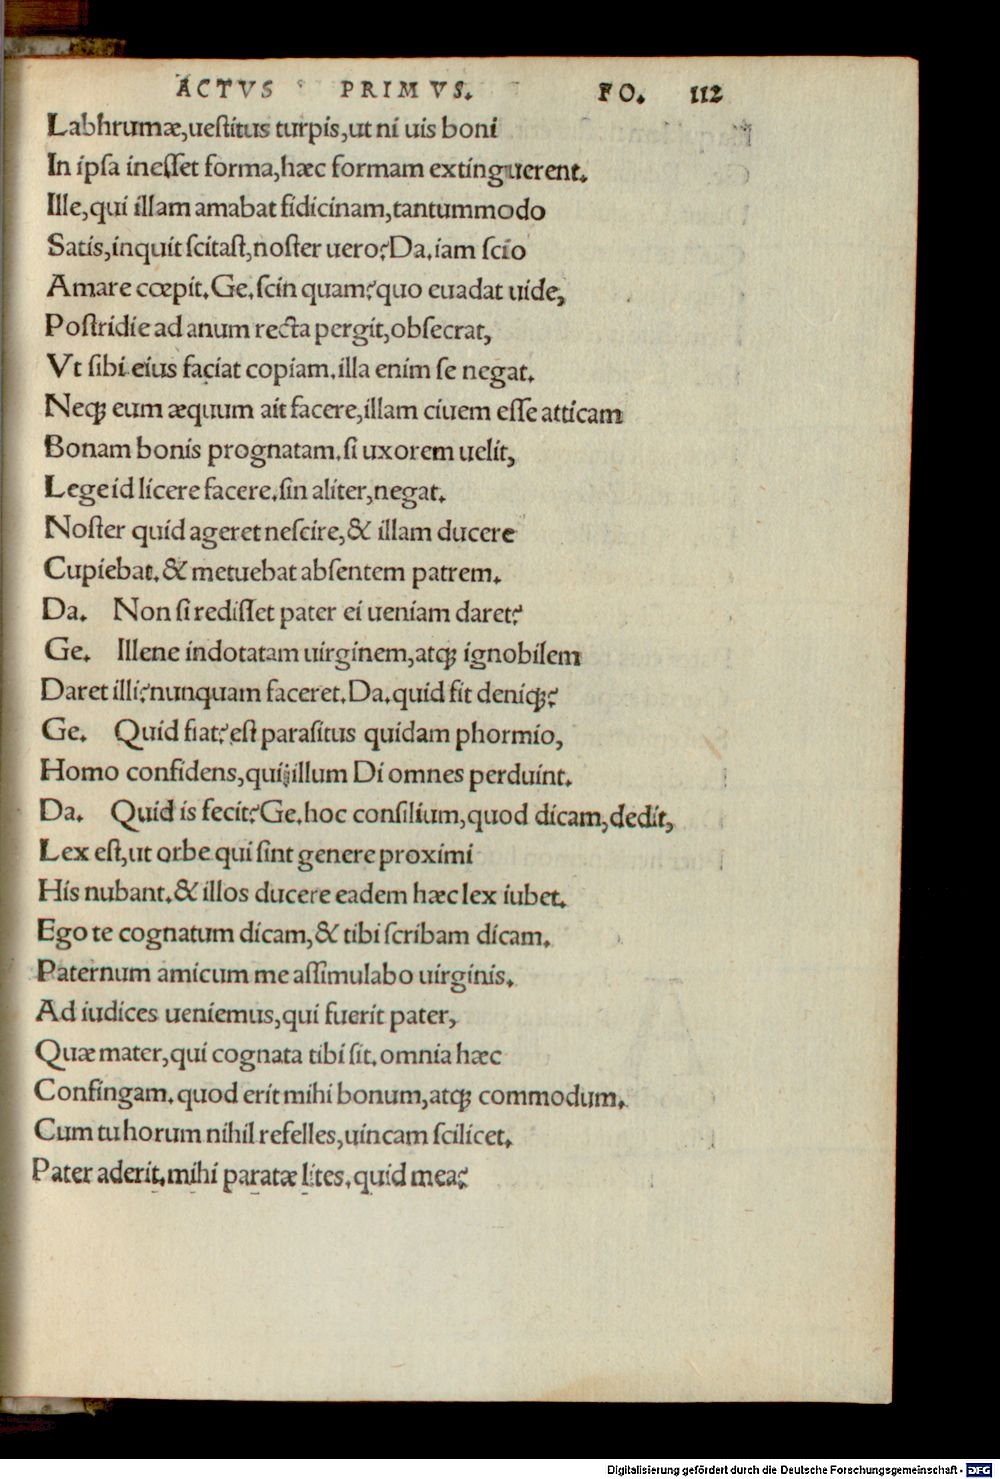 ACTVS PRIMVS. FO. 112
Labhrumæ,ueſtitus turpis,ut ni uis boni
In ipſa ineſſet forma,hæc formam extinguerent.
Ille,qui illam amabat fidicinam,tantummodo
Satis,inquit ſcitaſt,noſter uero?Da.iam ſcio
Amare cœpit.Ge.ſcin quam?quo euadat uide,
Poſtridie ad anum recta pergit,obſecrat,
Vt ſibi eius faciat copiam.illa enim ſe negat.
Neqꝫ eum æquum ait facere,illam ciuem eſſe atticam
Bonam bonis prognatam.ſi uxorem uelit,
Lege id licere facere.ſin aliter,negat.
Noſter quid ageret neſcire,& illam ducere
Cupiebat.& metuebat abſentem patrem.
Da. Non ſi rediſſet pater ei ueniam daret?
Ge. Illene indotatam uirginem,atqꝫ ignobilem
Daret illi?nunquam faceret.Da.quid fit deniqꝫ?
Ge. Quid fiat?eſt paraſitus quidam phormio,
Homo confidens,qui illum Di omnes perduint.
Da. Quid is fecit?Ge.hoc conſilium,quod dicam,dedit,
Lex eſt,ut orbe qui ſint genere proximi
His nubant.& illos ducere eadem hæc lex iubet.
Ego te cognatum dicam,& tibi ſcribam dicam.
Paternum amicum me aſſimulabo uirginis.
Ad iudices ueniemus,qui fuerit pater,
Quæ mater,qui cognata tibi ſit.omnia hæc
Confingam.quod erit mihi bonum,atqꝫ commodum.
Cum tu horum nihil refelles,uincam ſcilicet.
Pater aderit.mihi paratæ lites.quid mea?
Digitalisierung gefördert durch die Deutsche Forschungsgemeinschaft - DFG